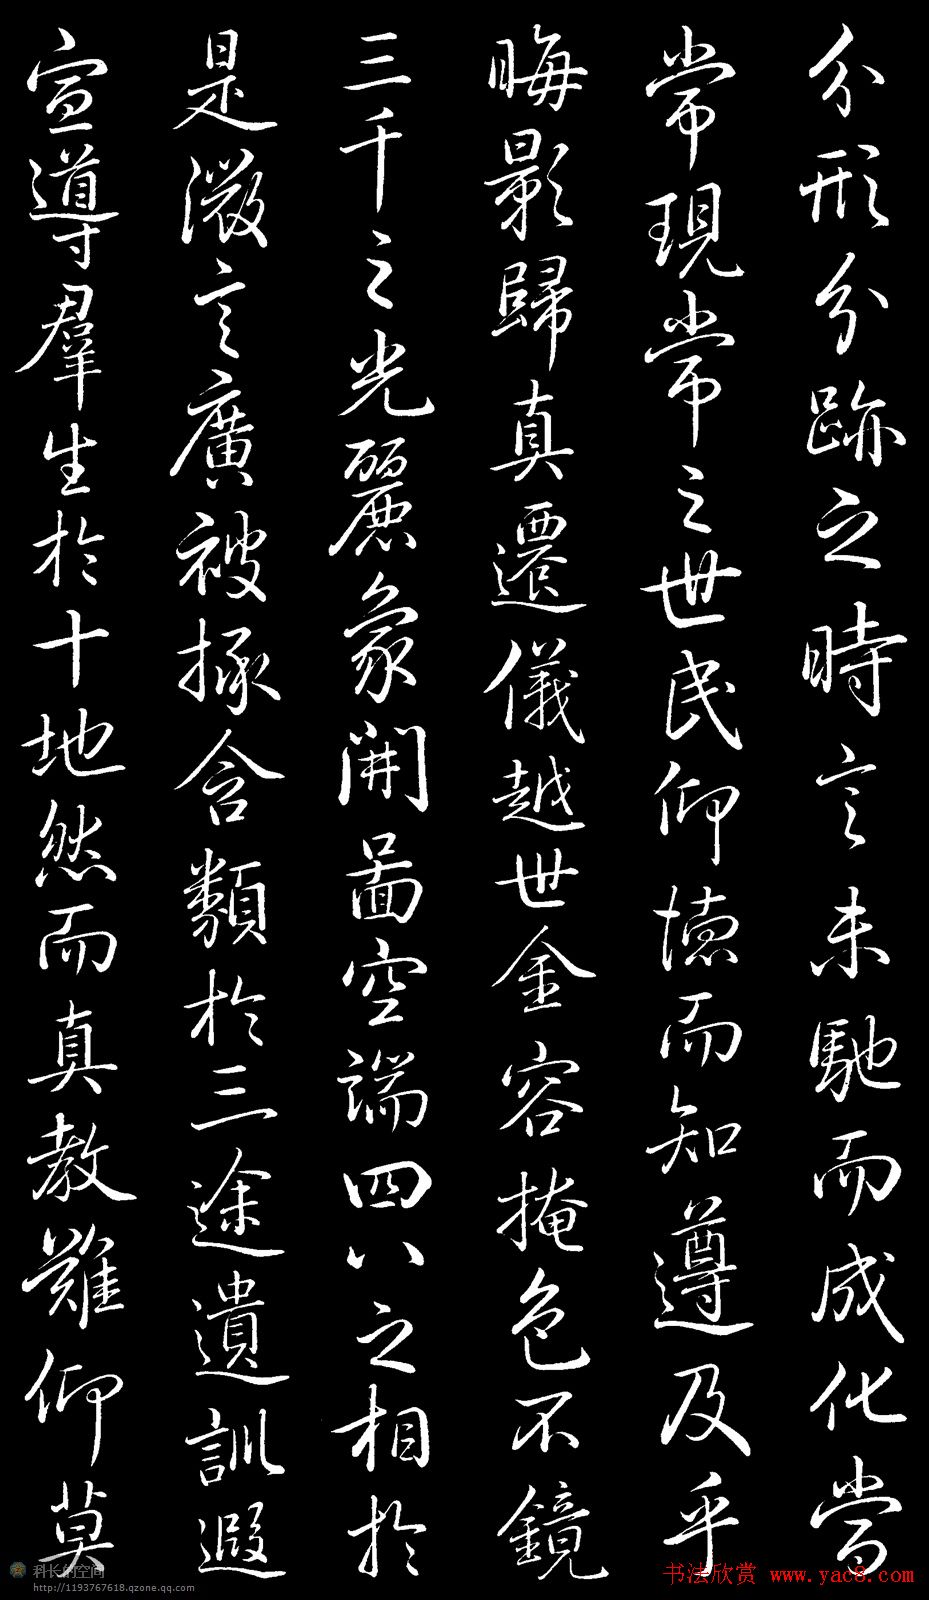 分形分跡之時言未馳而成化當
常現常之世民仰德而知遵及乎
晦影歸真遷儀越世金容掩色不鏡
三千之光麗象開圖空端四八之相於
是微言廣被拯含類於三途遺訓遐
宣導群生於十地然而真教難仰莫
科长的空间
http://1193767618.qzone.qq.com
书法欣赏 www.yac8.com